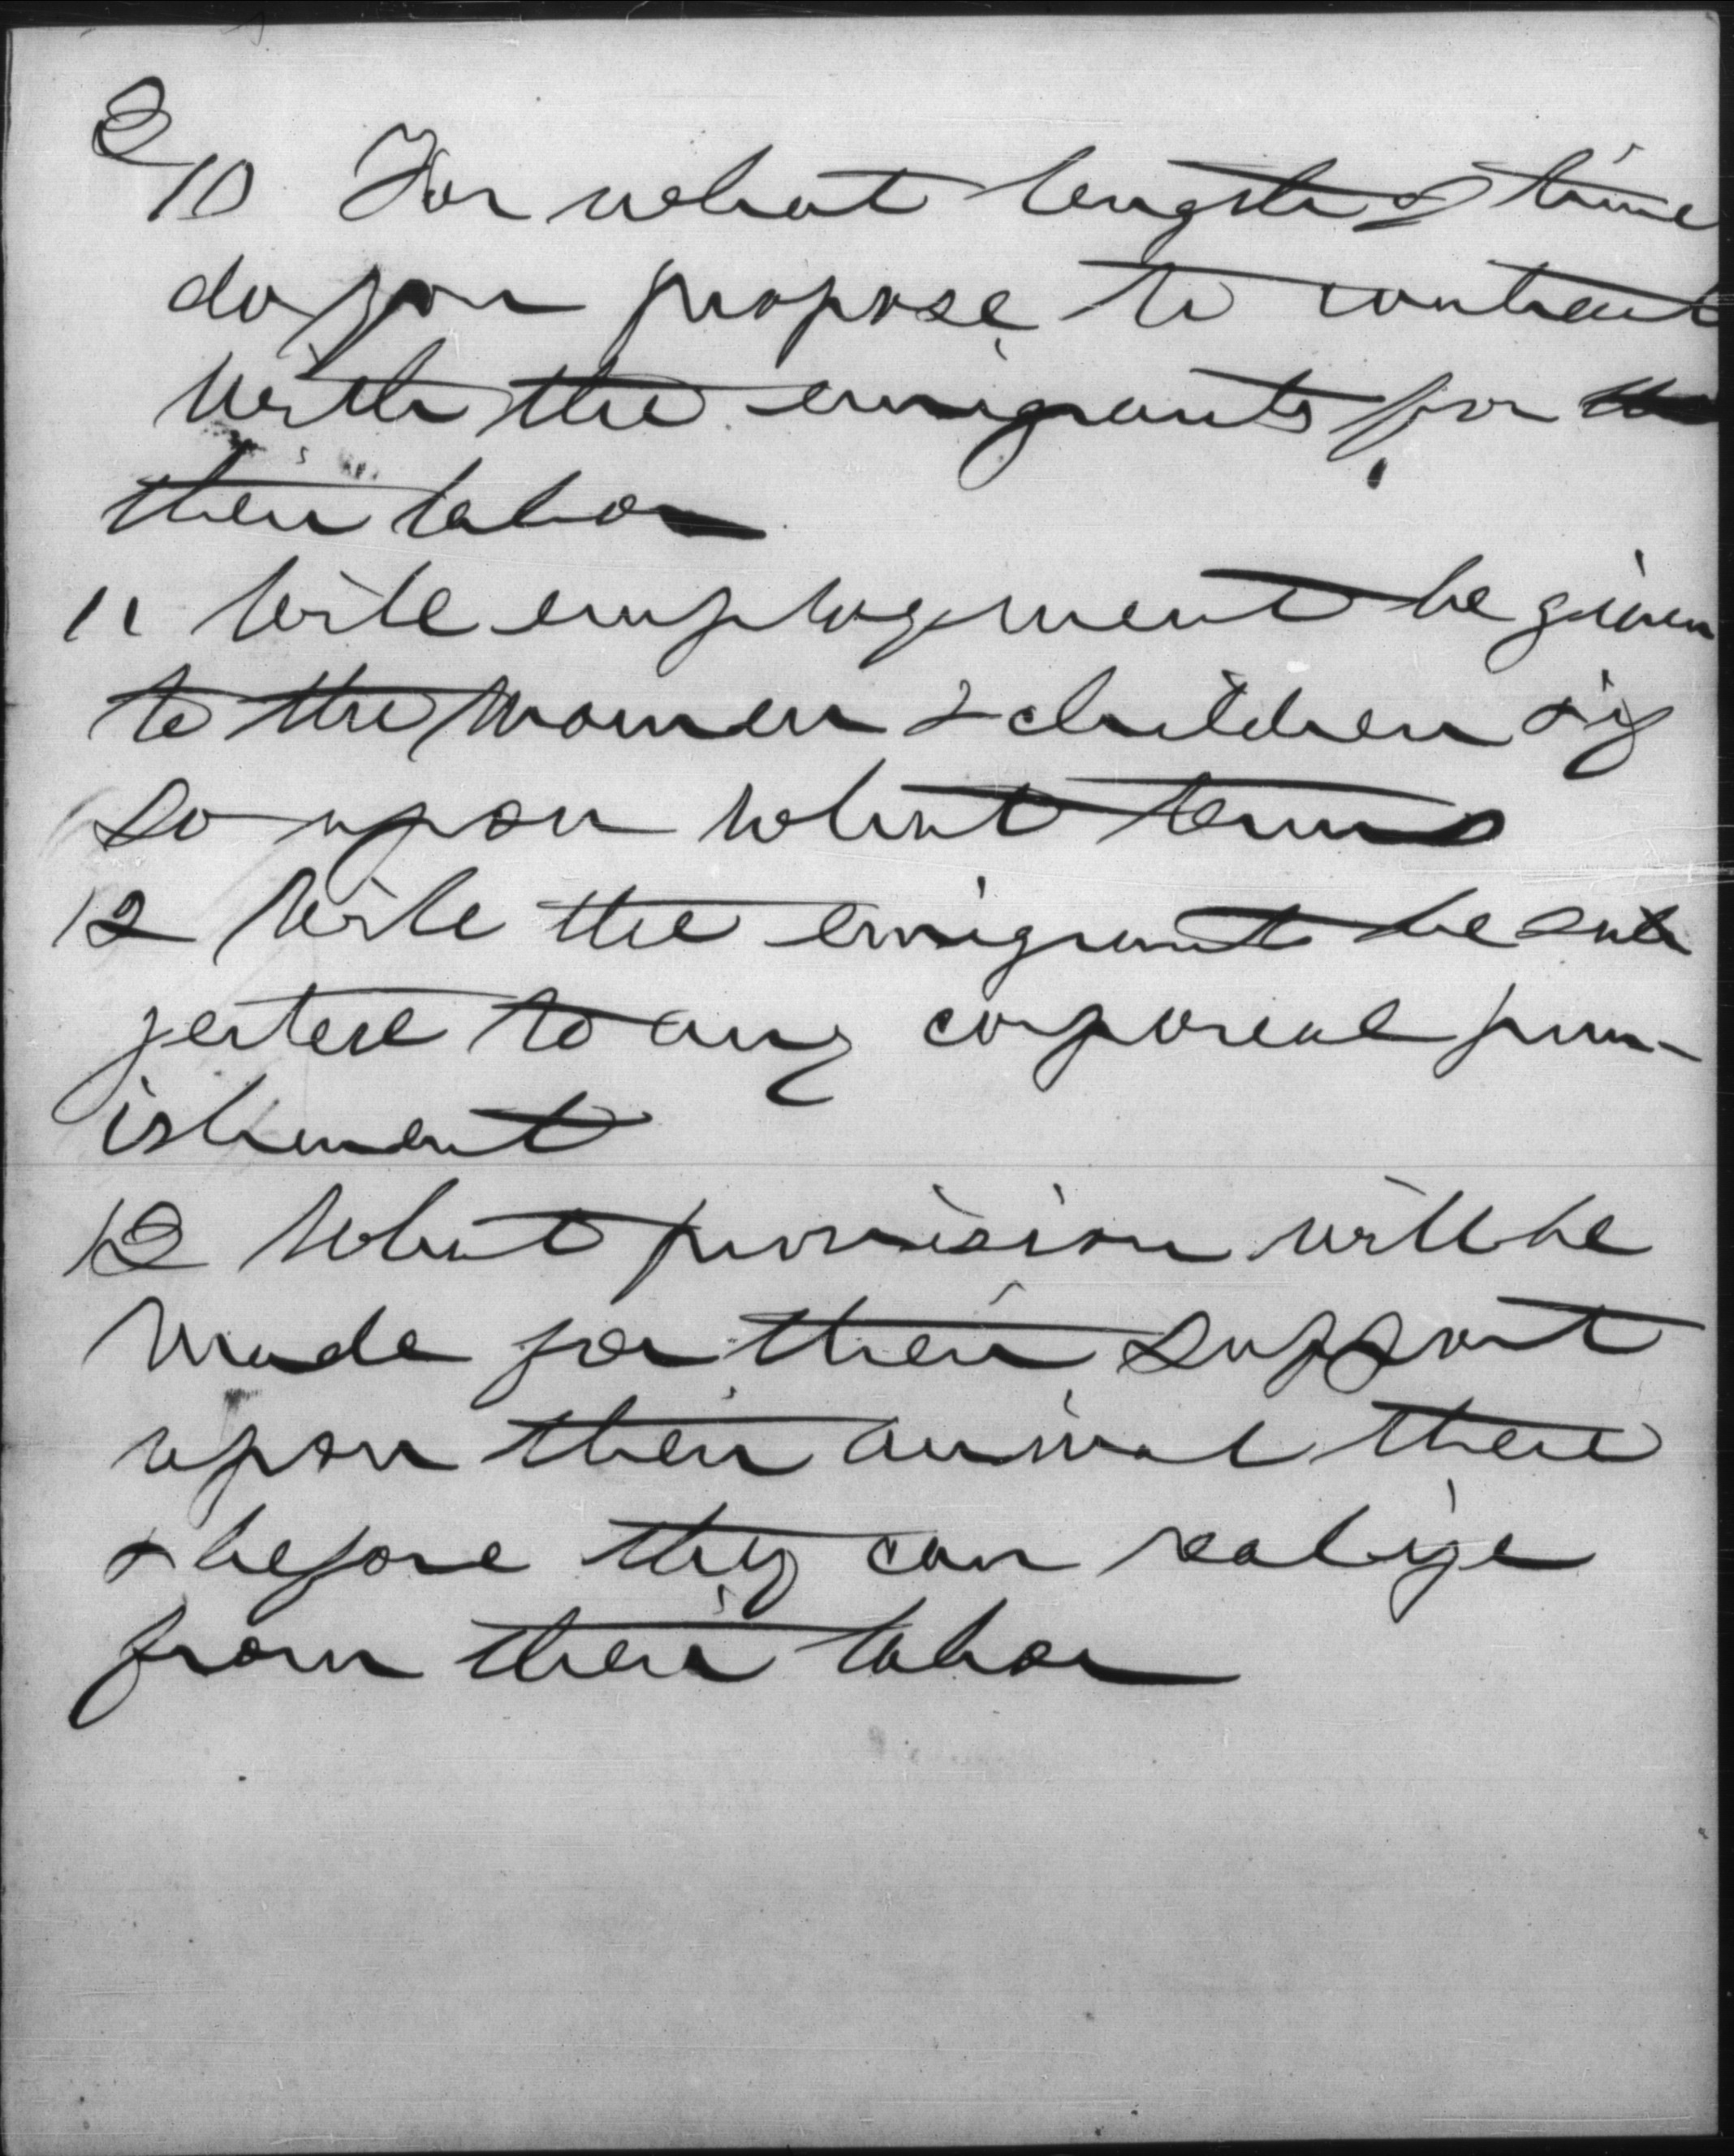 2
10 For what length of time
do you propose to contract
with the emigrants for
their labor
11 Will employment be given
to the women & children & if
so upon what terms
12 Will the emigrant be sub
jected to any corporeal pun-
ishment
12 What provision will be
made for their support
upon their arrival there
& before they can realize
from their labor